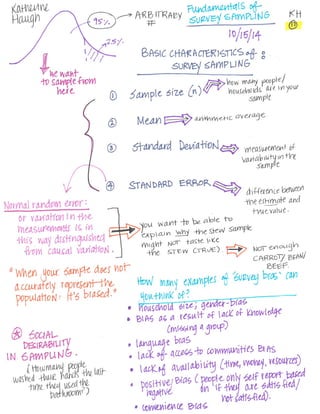 Katherine
Haugh
95%
2.5%
→ ARBITRARY
#
Fundamentals of
SURVEY SAMPLING
10/15/14
KH
BASIC CHARACTERISTICS of:
SURVEY SAMPLING
we want
to sample from
here
① Sample size (n)
how many people/
households are in your
sample
② Mean
arithmetic average
③ Standard Deviation
measurement of
variability in the
sample
④ STANDARD ERROR
difference between
the estimate and
true value.
Normal random error:
or variation in the
measurements is in
this way distinguished
from causal variation.
you want to be able to
explain why the stew sample
might NOT taste like
the STEW (TRUE)
Not enough
CARROT/BEAN/
BEEF.
"When your sample does not
accurately represent the
population: it's biased."
How many examples of "survey bias" can
you think of?
• Household size; gender-bias
• BIAS as a result of lack of knowledge
(missing a group)
• language bias
• lack of access to communities BIAS
• lack of availability (time, money, resources)
• positive/negative BIAS (people only self report based
on "if they are satisfied/
not satisfied).
• convenience BIAS
SOCIAL
DESIRABILITY
IN SAMPLING.
(How many people
washed their hands the last
time they used the
bathroom?)